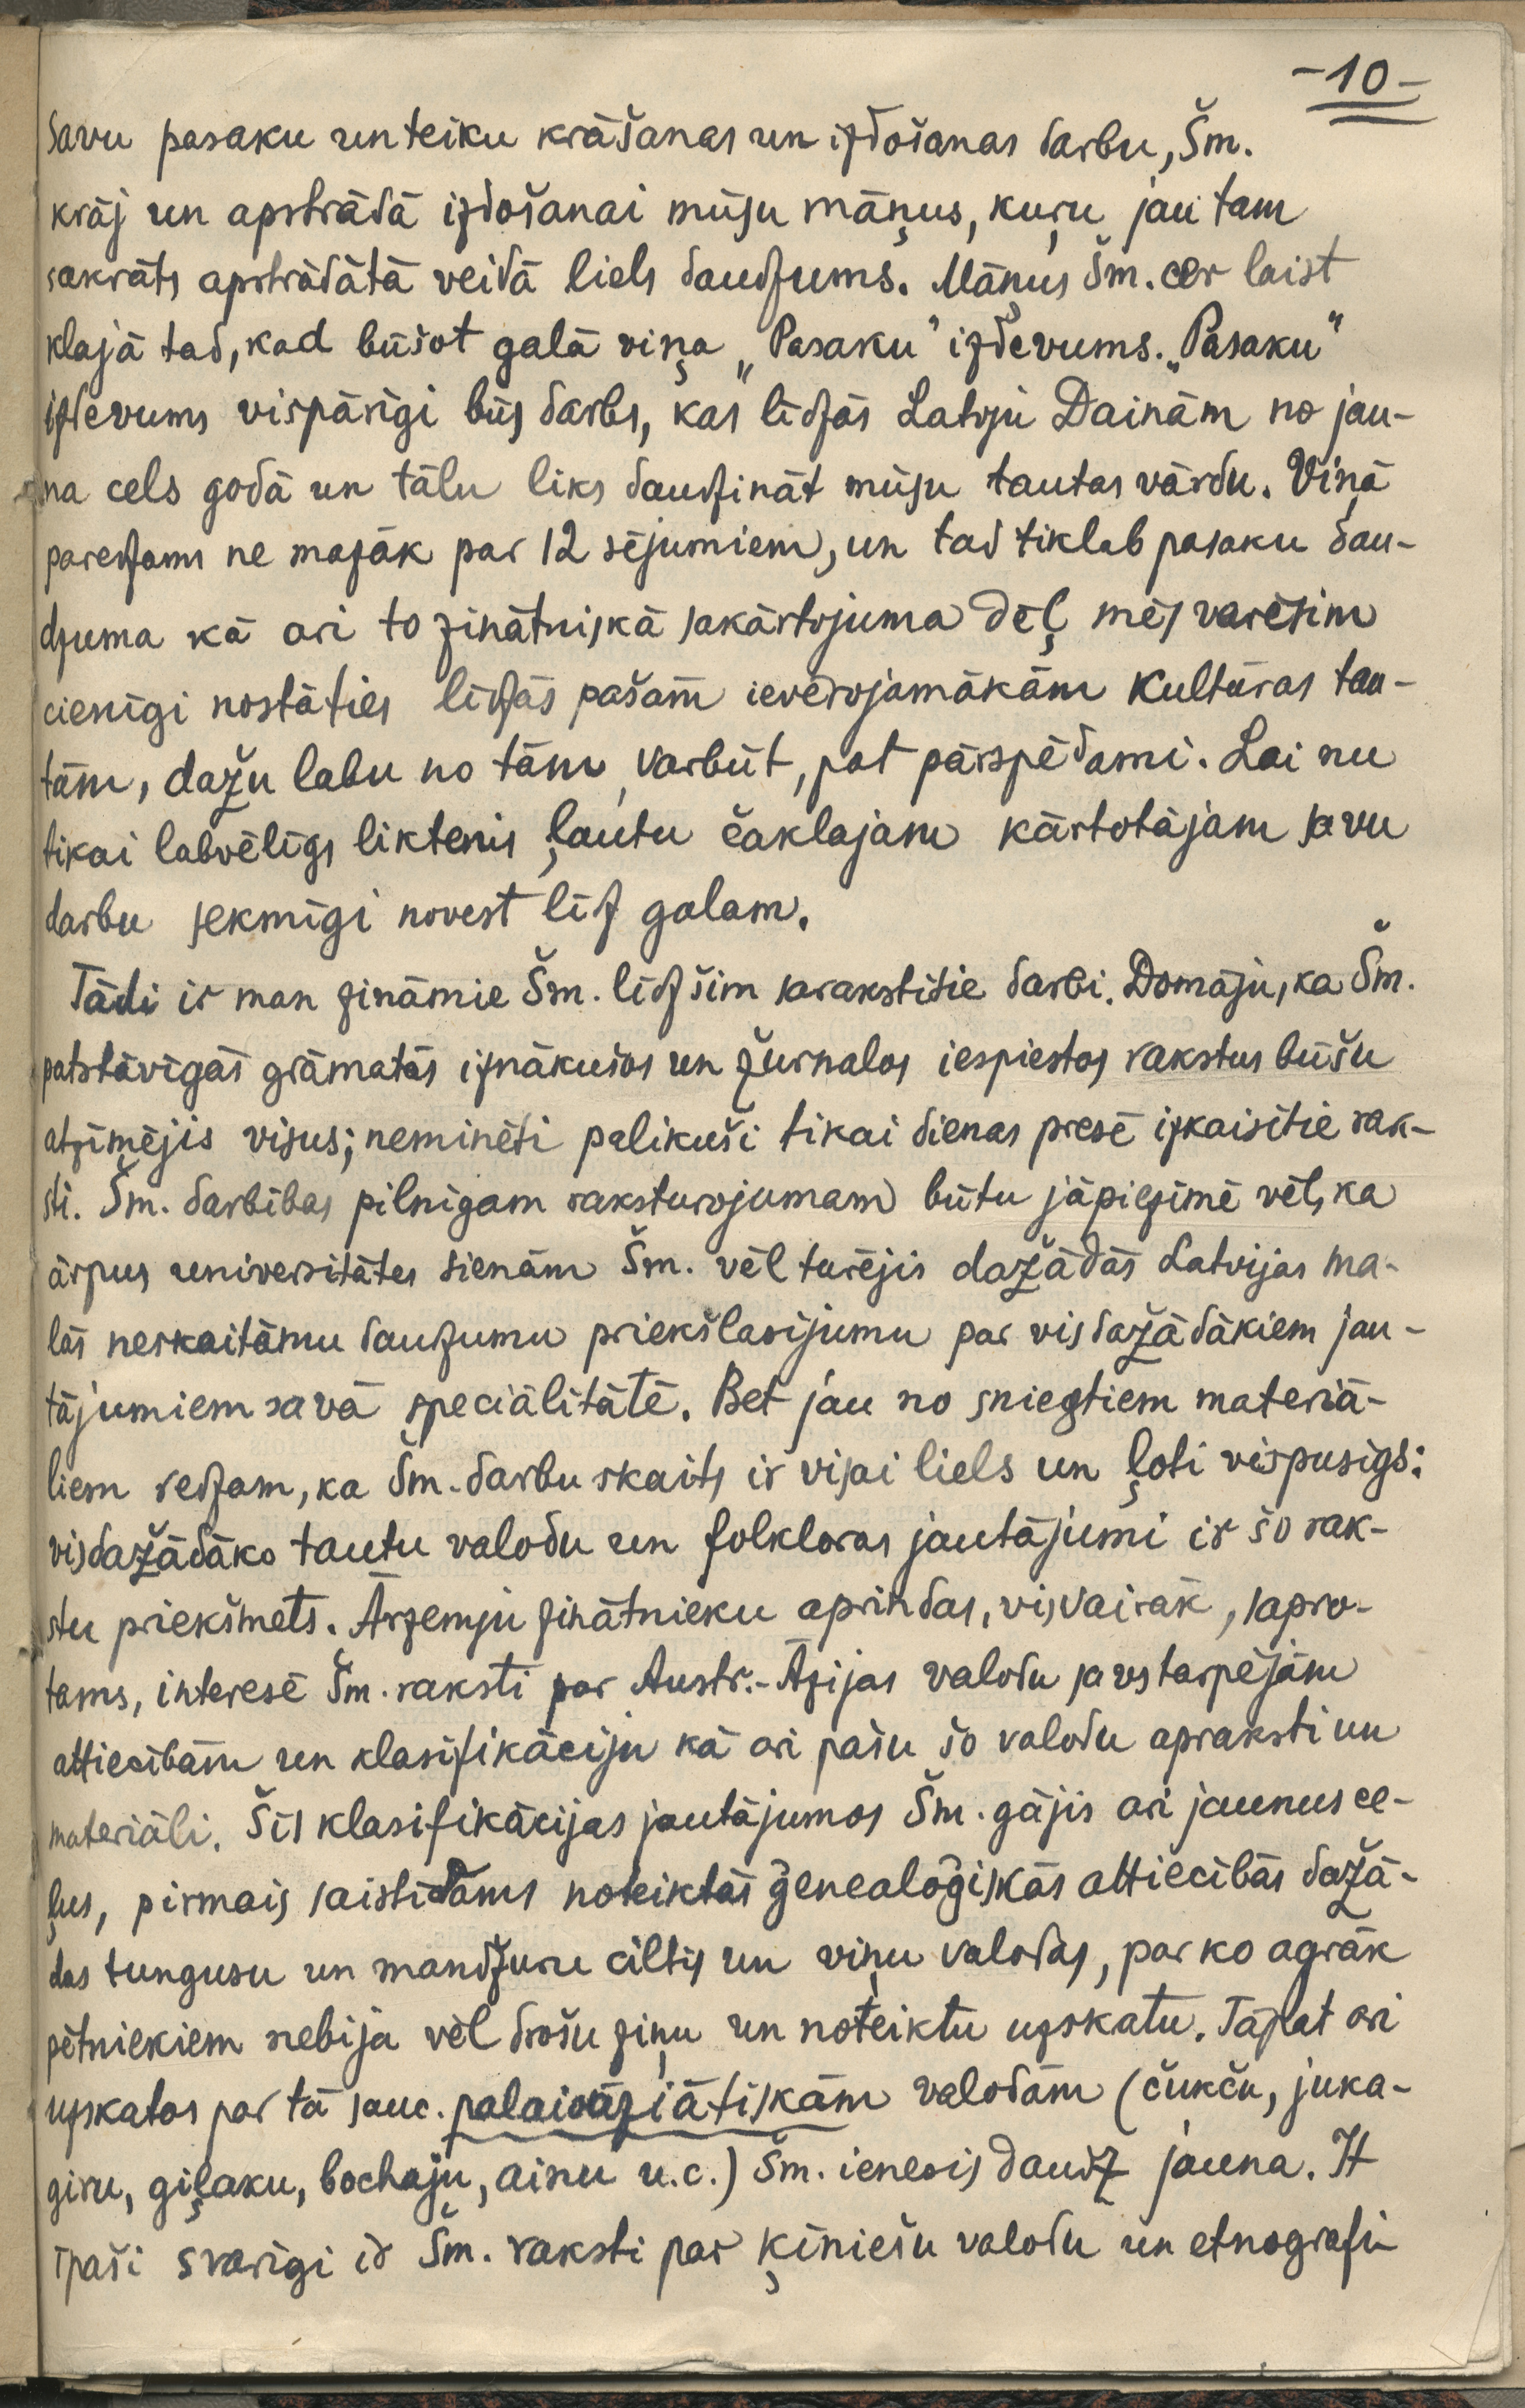 -10-
savu pasaku un teiku krāšanas un izdošanas darbu, Šm.
krāj un apstrādā izdošanai mūsu māņus, kuŗu jau tam
sakrāts apstrādātā veidā liels daudzums. Māņus Šm. cer laist
klajā tad, kad būšot galā viņa „Pasaku" izdevums. „Pasaku"
izdevums vispārīgi būs darbs, kas līdzās Latvju Dainām no jau-
na cels godā un tālu liks daudzināt mūsu tautas vārdu. Viņā
paredzams ne mazāk par 12 sējumiem, un tad tiklab pasaku dau-
dzuma kā arī to zinātniskā sakārtojuma dēļ mēs varēsim
cienīgi nostāties līdzās pašām ievērojamākām kultūras tau-
tām, dažu labu no tām, varbūt, pat pārspēdami. Lai nu
tikai labvēlīgs liktenis ļautu čaklajam kārtotājam savu
darbu sekmīgi novest līdz galam.
Tādi ir man zināmie Šm. līdz šim sarakstītie darbi. Domāju, ka Šm.
patstāvīgās grāmatās iznākušos un žurnalos iespiestos rakstus būšu
atzīmējis visus; neminēti palikuši tikai dienas presē izkaisītie rak-
sti. Šm. darbības pilnīgam raksturojumam būtu jāpiezīmē vēl, ka
ārpus universitātes sienām Šm. vēl turējis dažādās Latvijas ma-
lās neskaitāmu daudzumu priekšlasījumu par visdažādākiem jau-
tājumiem savā speciālitātē. Bet jau no sniegtiem materiā-
liem redzam, ka Šm. darbu skaits ir visai liels un ļoti vispusīgs:
visdažādāko tautu valodu un folkloras jautājumi ir šo rak-
stu priekšmets. Ārzemju zinātnieku aprindas, visvairāk, sapro-
tams, interesē Šm. raksti par Austr.-Āzijas valodu savstarpējām
attiecībām un klasifikāciju kā arī pašu šo valodu apraksti un
materiāli. Šīs klasifikācijas jautājumos Šm. gājis arī jaunus ce-
ļus, pirmais saistīdams noteiktās ģenealoģiskās attiecībās dažā-
das tungusu un mandžuru ciltis un viņu valodas, par ko agrāk
pētniekiem nebija vēl drošu ziņu un noteiktu uzskatu. Tāpat arī
uzskatos par tā sauc. palaioāziātiskām valodām (čukču, juka-
giru, giļaku, bochaju, ainu u.c.) Šm. ienesis daudz jauna. It
īpaši svarīgi ir Šm. raksti par ķīniešu valodu un etnografi-